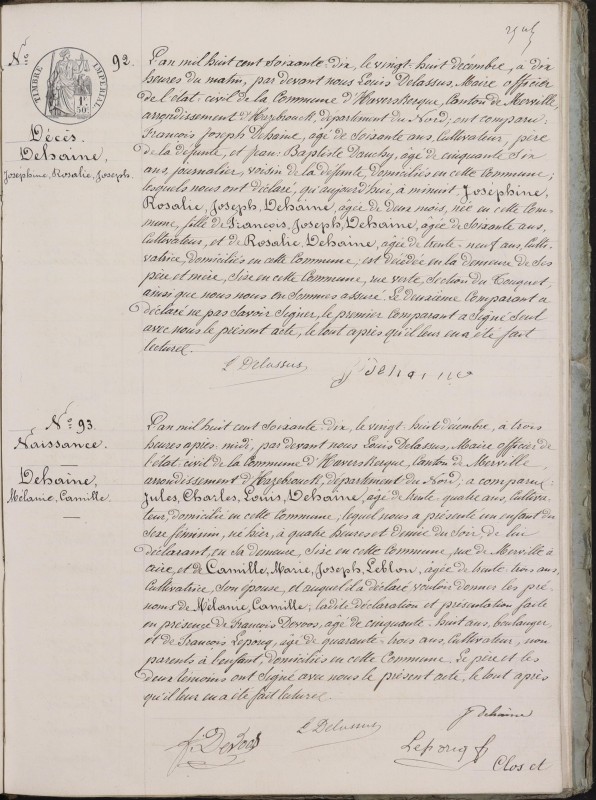 N.° 92.
TIMBRE IMPERIAL
1F
50c
Décès.
Dehaine,
Josephine, Rosalie, Joseph.
L'an mil huit cent Soixante-dix, le vingt-huit décembre, à dix
heures du matin, par devant nous Louis Delassus, Maire officier
de l'état-civil de la Commune d'Haverskerque, Canton de Merville,
arrondissement d'Hazebrouck, département du Nord; ont comparu:
François Joseph Dehaine, âgé de Soixante ans, Cultivateur, père
de la défunte, et Jean-Baptiste Dauchy, âgé de cinquante Six
ans, journalier, voisin de la défunte, domiciliés en cette Commune;
lesquels nous ont déclaré, qu'aujourd'hui, à minuit, Joséphine,
Rosalie, Joseph, Dehaine, âgée de deux mois, née en cette Com-
mune, fille de François, Joseph, Dehaine, âgé de Soixante ans,
Cultivateur, et de Rosalie Dehaine, âgée de trente-neuf ans, Culti-
vatrice, domiciliés en cette Commune; est décédée en la demeure de Ses
père et mère, Sise en cette Commune, rue verte, Section du Touquet,
ainsi que nous nous en Sommes assuré. Le deuxième Comparant a
déclaré ne pas Savoir Signer, le premier Comparant a Signé Seul
avec nous le présent acte, le tout après qu'il leur en a été fait
lecture.
L Delassus
f j Dehaine
N.° 93.
Naissance.
Dehaine,
Mélanie, Camille.
L'an mil huit cent Soixante-dix, le vingt-huit décembre, à trois
heures après-midi, par devant nous Louis Delassus, Maire officier de
l'état civil de la Commune d'Haverskerque, Canton de Merville,
arrondissement d'Hazebrouck, département du Nord, a comparu:
Jules, Charles, Louis, Dehaine, âgé de trente-quatre ans, Cultiva-
teur, domicilié en cette Commune, lequel nous a présenté un enfant du
Sexe féminin, né hier, à quatre heures et demie du Soir, de lui
déclarant, en Sa demeure, Sise en cette Commune, rue de Merville à
Aire, et de Camille, Marie, Joseph, Leblon, âgée de trente-trois ans,
Cultivatrice, Son épouse, et auquel il a déclaré vouloir donner les pré-
noms de Mélanie, Camille; ladite déclaration et présentation faite
en présence de François Devoos, âgé de cinquante-huit ans, boulanger,
et de François Lepouq, âgé de quarante-trois ans, Cultivateur, non
parents à l'enfant, domiciliés en cette Commune. Le père et les
deux témoins ont Signé avec nous le présent acte, le tout après
qu'il leur en a été fait lecture.
J Dehaine
f. Devoos
L Delassus
Lepouq f
Clos et